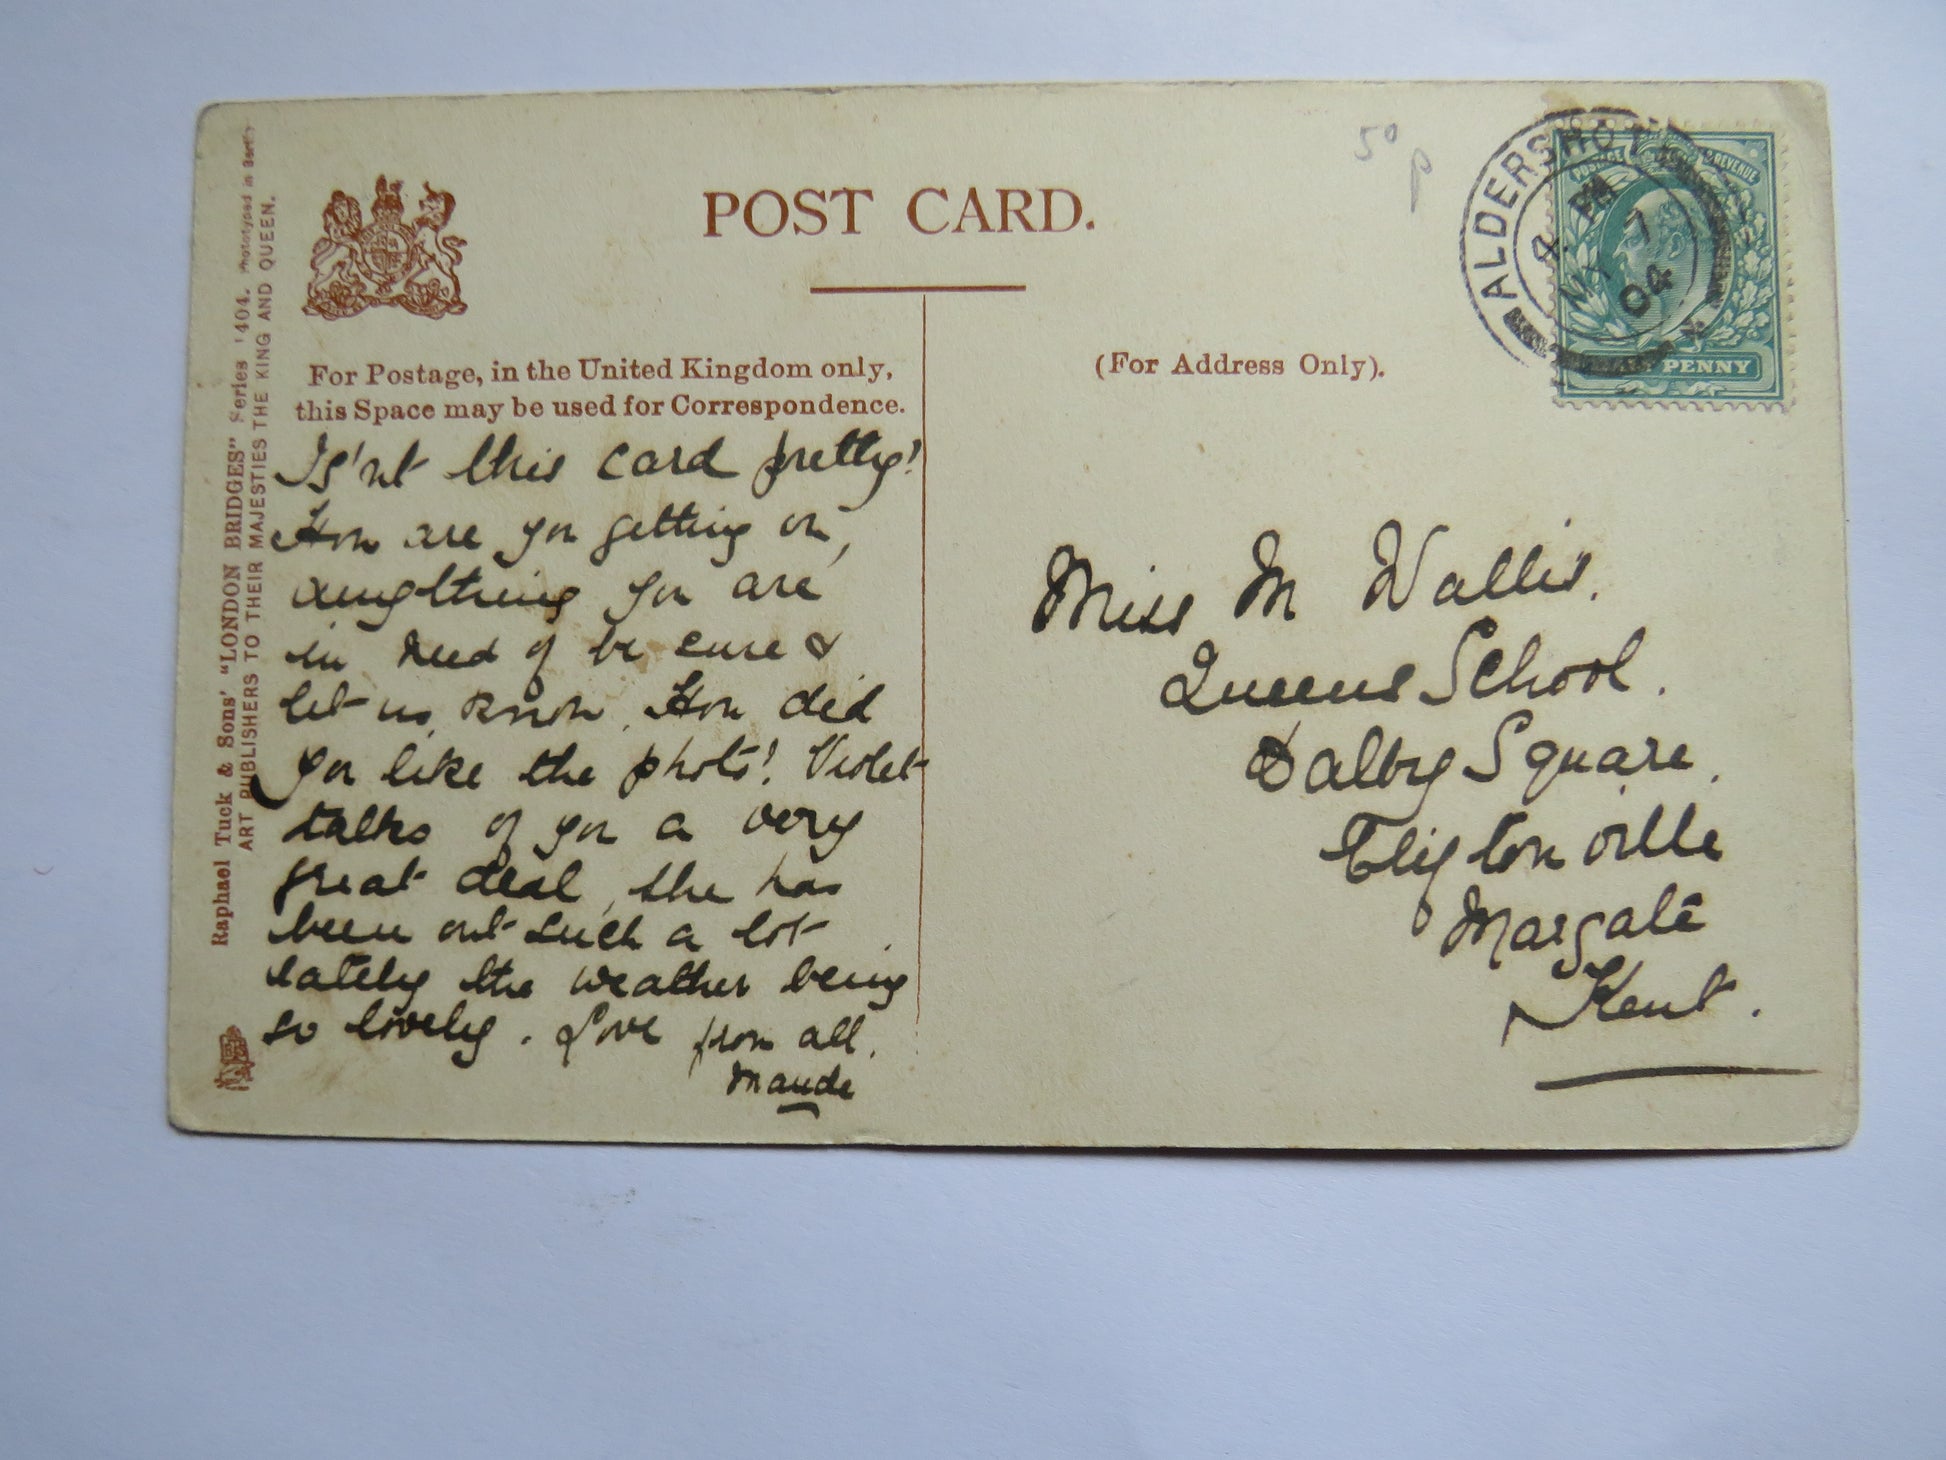 POST CARD.
For Postage, in the United Kingdom only,
this Space may be used for Correspondence.
(For Address Only).
Raphael Tuck & Sons' "LONDON BRIDGES" Series 1404. Phototyped in
ART PUBLISHERS TO THEIR MAJESTIES THE KING AND QUEEN.
50
p
ALDERSHOT
PM
MY 7
04
POSTAGE REVENUE
PENNY
Is'nt this card pretty!
How are you getting on,
anything you are
in need of be sure &
let us know. How did
you like the photo! Violet
talks of you a very
great deal, she has
been out such a lot
lately the weather being
so lovely. Love from all.
Maude
Miss M Wallis.
Queens School.
Dalby Square.
Cliftonville
Margate
Kent.